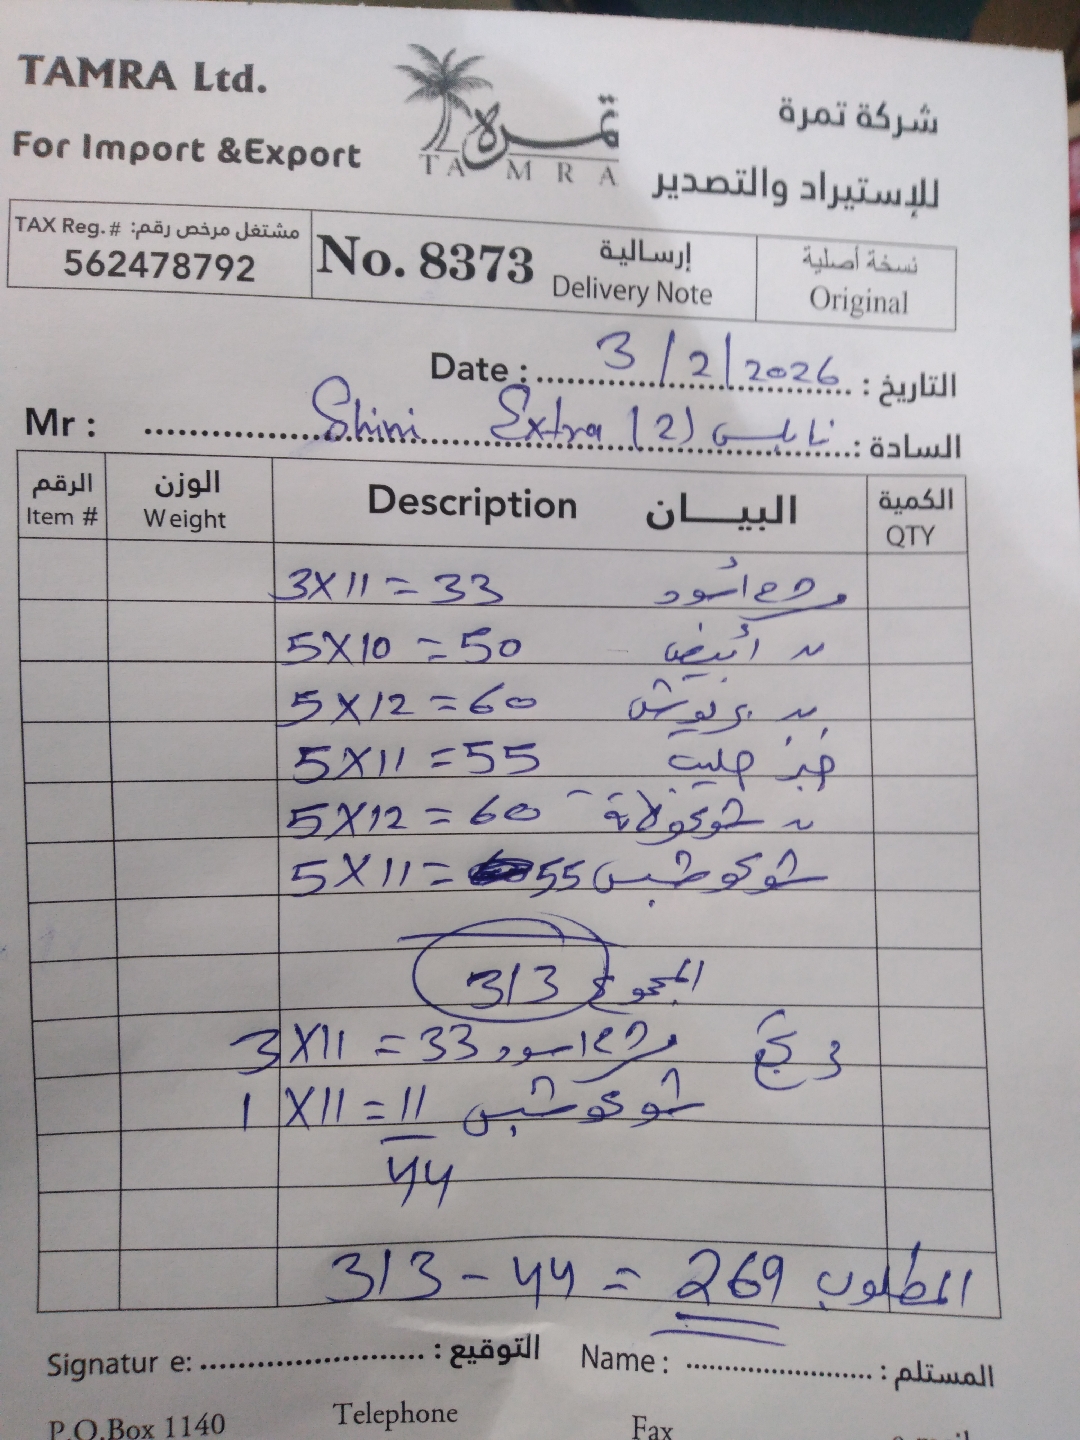 TAMRA Ltd.
For Import &Export
تمرة
TAMRA
شركة تمرة
للإستيراد والتصدير
TAX Reg. # مشتغل مرخص رقم:
562478792
No. 8373
إرسالية
Delivery Note
نسخة أصلية
Original
Date : 3/2/2026 التاريخ :
Mr : Shini Extra (2) نابلس السادة :
الرقم الوزن Description البيـــان الكمية
Item # Weight QTY
3X11 = 33 اسود
5X10 = 50 " أبيض
5X12 = 60 "
5X11 = 55 خبز حليب
5X12 = 60 " شوكولاتة
5X11 = 55 شوكو شبس
المجموع 313
3X11 = 33 اسود
1X11 = 11 شوكو شبس
44
313 - 44 = 269 المطلوب
Signatur e: التوقيع : Name : المستلم :
P.O.Box 1140 Telephone Fax